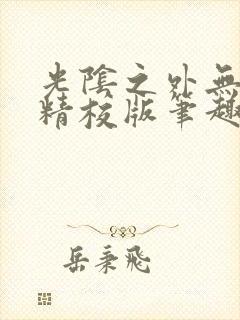 光陰之外無
精校版筆趣
岳秉飛